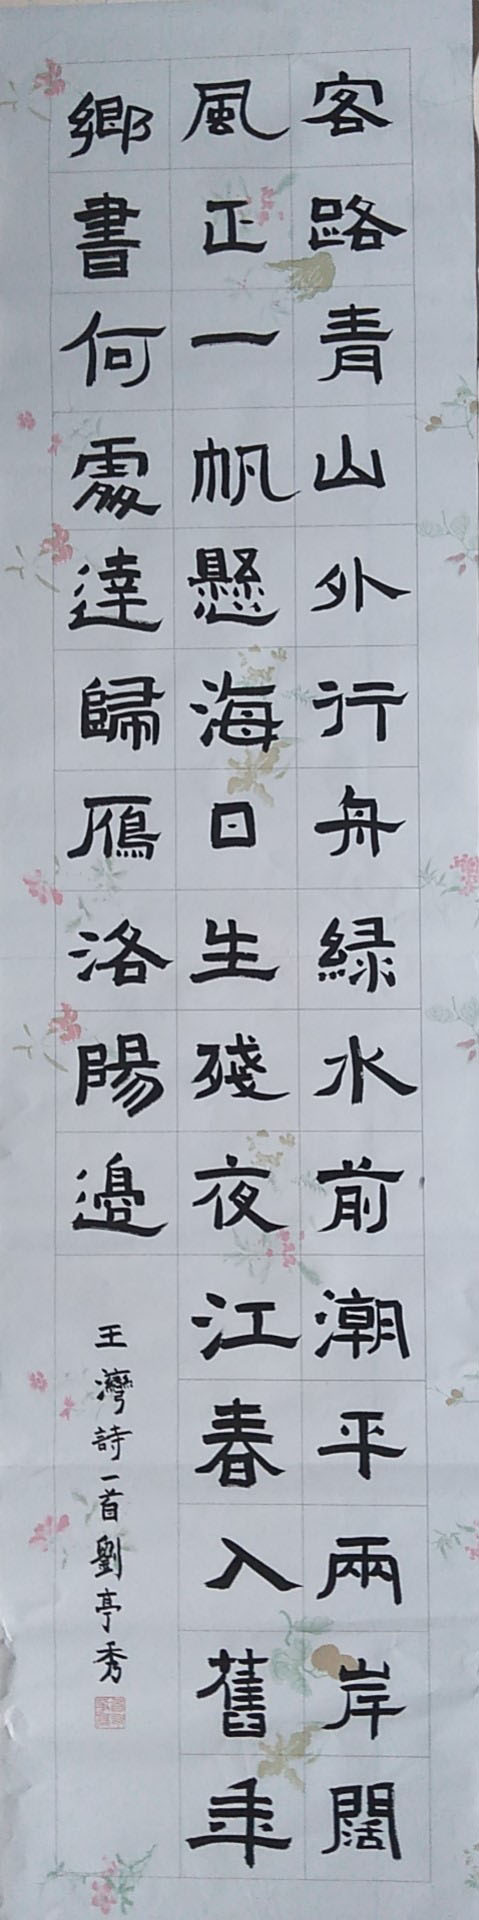 客路青山外行舟緑水前潮平兩岸闊
風正一帆懸海日生殘夜江春入舊年
鄉書何處達歸雁洛陽邊
王灣詩一首劉亭秀